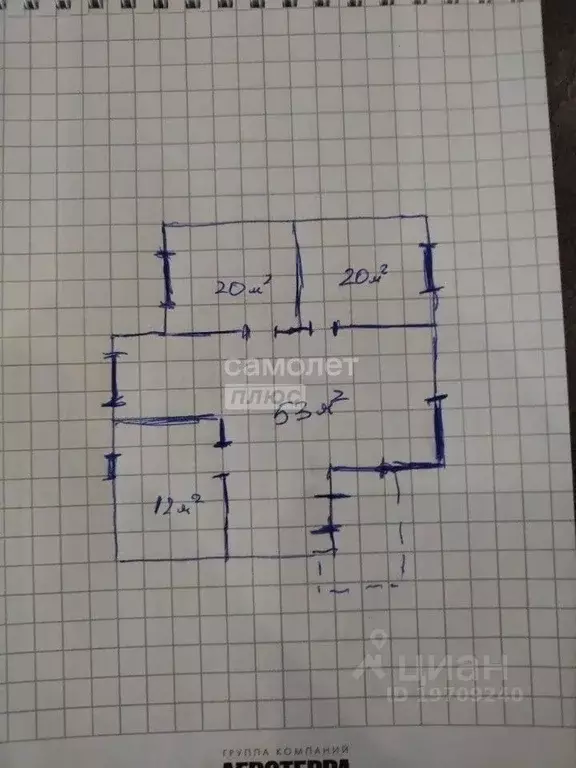 20 м²
20 м²
самолет
плюс
53 м²
12 м²
циан
ID 19709240
ГРУППА КОМПАНИЙ
АГРОТЕРРА